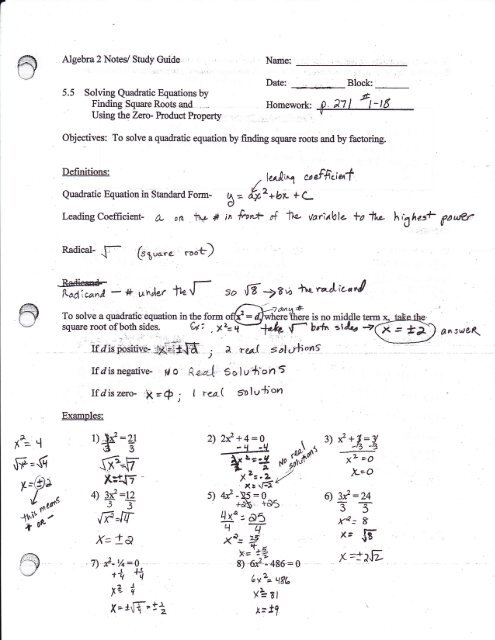 Algebra 2 Notes/ Study Guide Name:
Date: Block:
5.5 Solving Quadratic Equations by
Finding Square Roots and
Using the Zero- Product Property
Homework: p. 271 # 1-18
Objectives: To solve a quadratic equation by finding square roots and by factoring.
Definitions:
leading coefficient
Quadratic Equation in Standard Form- y = ax²+bx +C
Leading Coefficient- a or the # in front of the variable to the highest power
Radical- √ (square root)
Radicand-
Radicand — # under the √ so √8 → 8 is the radicand
→any #
To solve a quadratic equation in the form of x² = d, where there is no middle term x, take the
square root of both sides. Ex: x²=4 take √ both sides → x = ±2 answer
If d is positive- x = ±√d ; 2 real solutions
If d is negative- no Real solutions
If d is zero- x = 0 ; 1 real solution
Examples:
x² = 4
√x² = √4
x = ±2
this means
+ or -
1) 3x² = 21
3 3
√x² = √7
x = ±√7
2) 2x² + 4 = 0
-4 -4
2x² = -4
2 2
x² = -2
x = √-2
no real
solutions
3) x² + 3 = 3
-3 -3
x² = 0
x = 0
4) 3x² = 12
3 3
√x² = √4
x = ±2
5) 4x² - 25 = 0
+25 +25
4x² = 25
4 4
x² = 25/4
x = ±5/2
6) 3x² = 24
3 3
x² = 8
x = √8
x = ±2√2
7) x² - ¼ = 0
+¼ +¼
x² = ¼
x = ±√¼ = ±½
8) 6x² - 486 = 0
6x² = 486
x² = 81
x = ±9